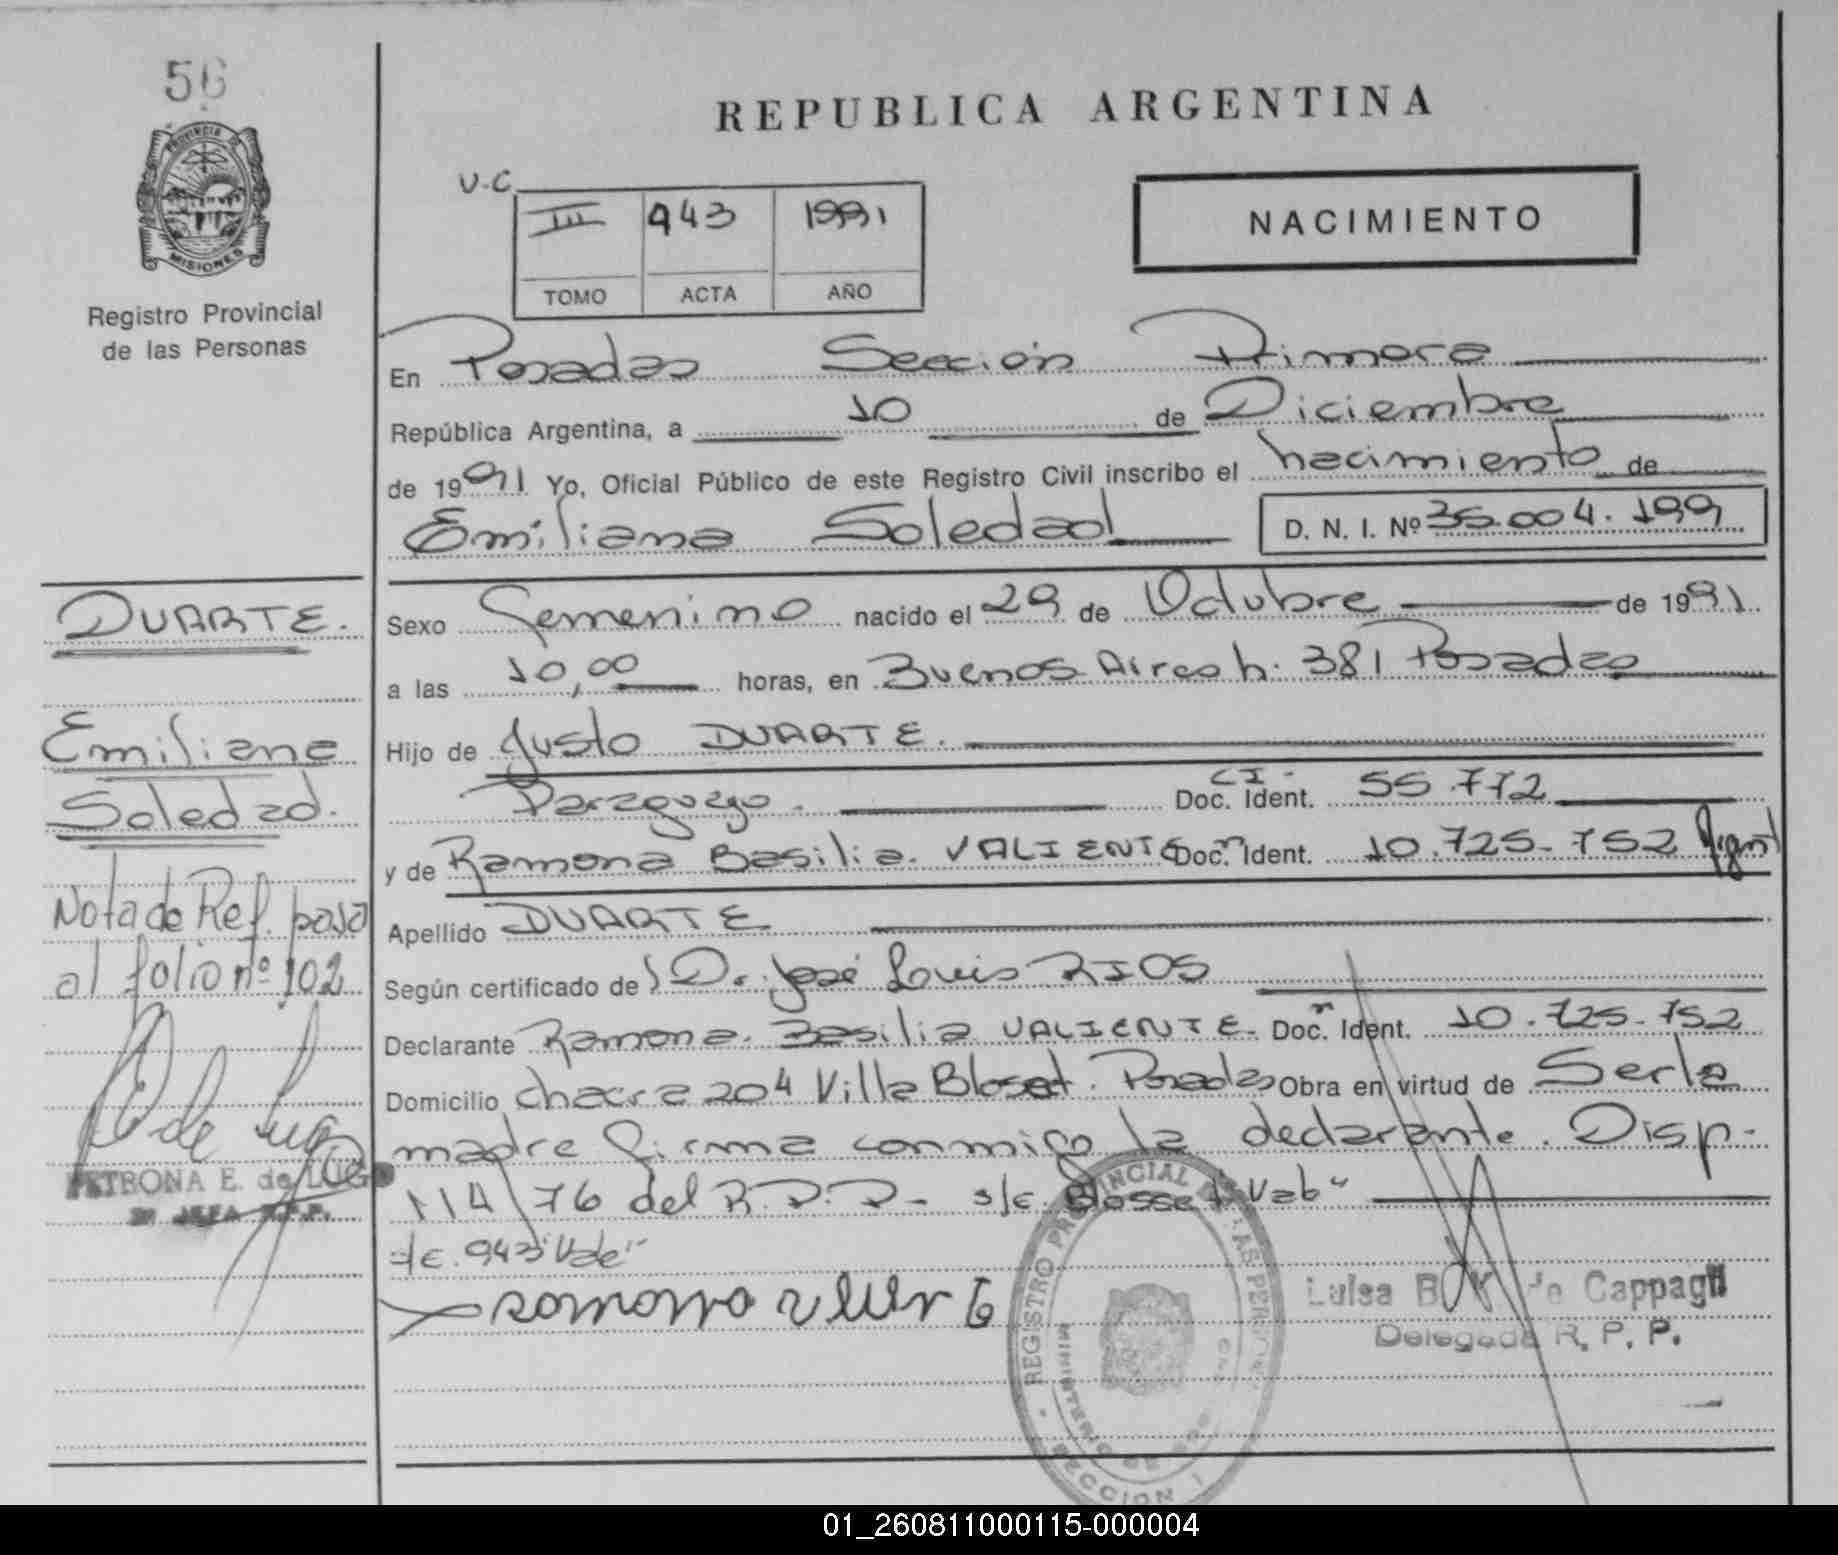 56
PROVINCIA DE
MISIONES
Registro Provincial
de las Personas
REPUBLICA ARGENTINA
V.C.
III 943 1991
TOMO ACTA AÑO
NACIMIENTO
En Posadas Sección Primera
República Argentina, a 10 de Diciembre
de 1991 Yo, Oficial Público de este Registro Civil inscribo el nacimiento de
Emiliana Soledad D. N. I. Nº 36.004.199
DUARTE.
Emiliana
Soledad.
Nota de Ref. pasa
al folio nº 102
PETRONA E. de LUGO
Sexo Femenino nacido el 29 de Octubre de 1991
a las 10,00 horas, en Buenos Aires h. 381 Posadas
Hijo de Justo DUARTE.
Paraguayo. Doc. Ident. CI. 55.772
y de Ramona Basilia VALIENTE Doc. Ident. 10.725.752 Argent
Apellido DUARTE
Según certificado de Dr. José Luis RIOS
Declarante Ramona Basilia VALIENTE. Doc. Ident. 10.725.752
Domicilio chacra 204 Villa Blosset. Posadas Obra en virtud de Ser la
madre firma conmigo la declarante. Disp.
114/76 del R.P.P. s/e. Blosset "Vab"
s/e. 943 "Vale"
REGISTRO PROVINCIAL DE LAS PERSONAS
MINISTERIO DE GOB
SECCION 1
Luisa B. K. de Cappagli
Delegada R. P. P.
01_260811000115-000004